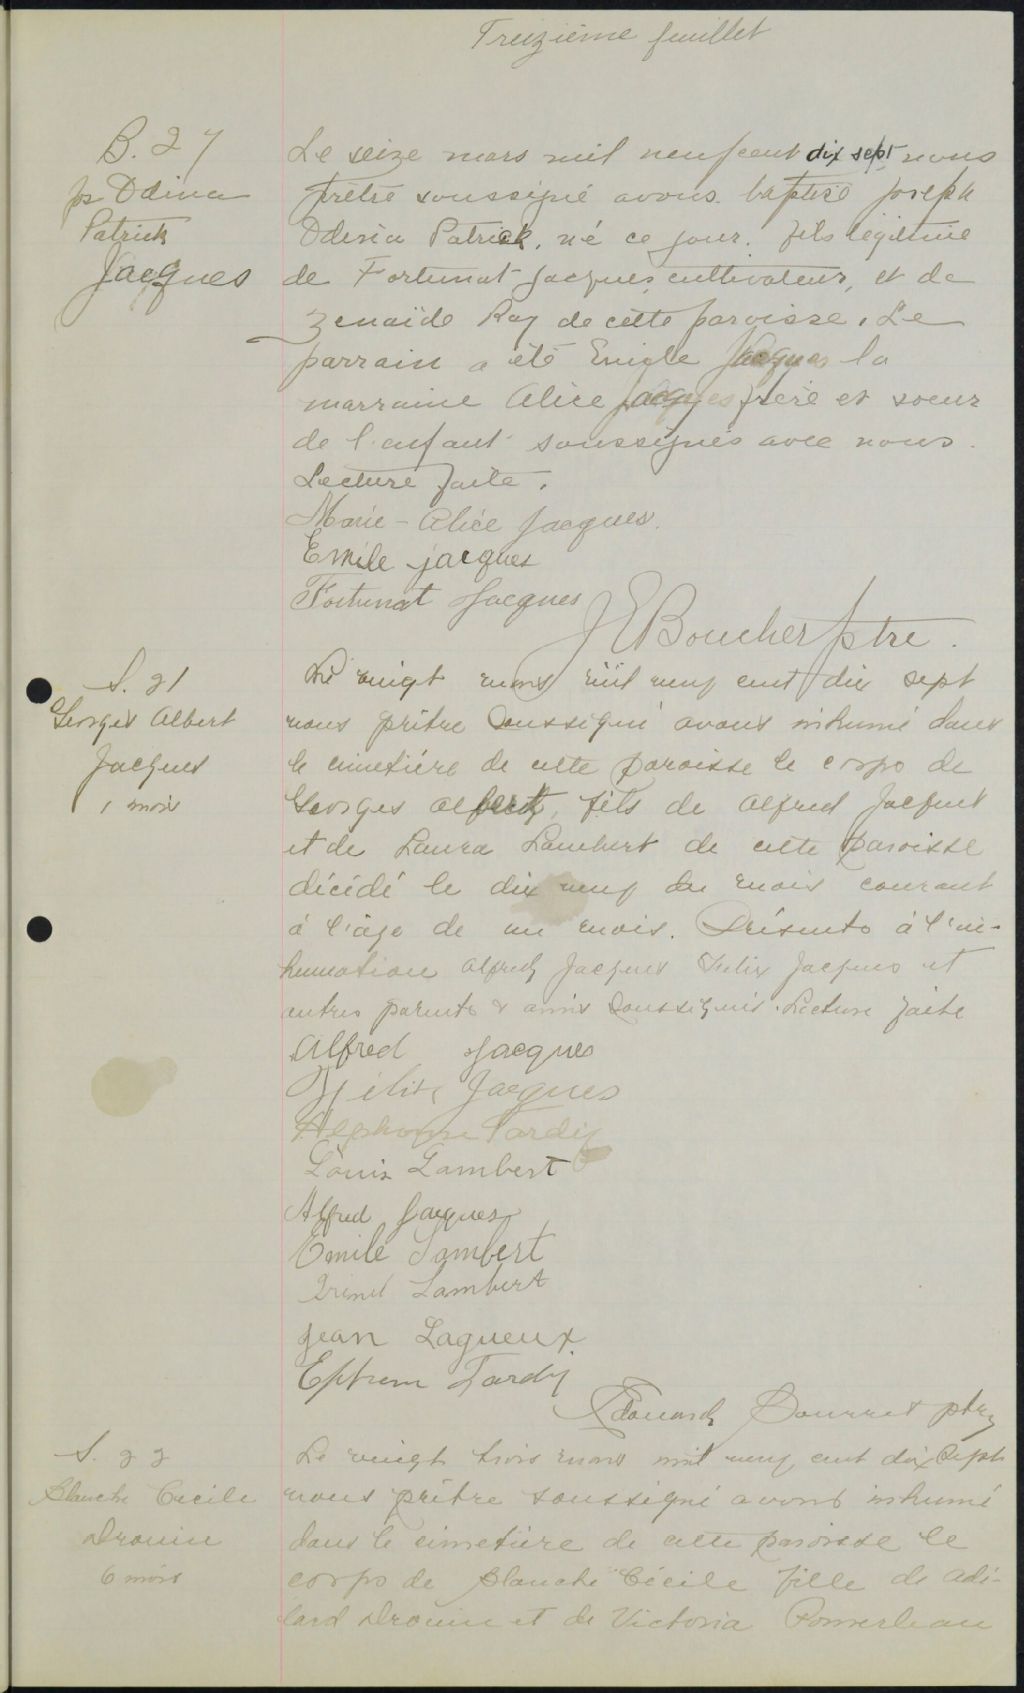 Treizième feuillet
B. 27
Jos Odina
Patrick
Jacques
Le seize mars mil neuf cent dix sept nous
prêtre soussigné avons baptisé Joseph
Odina Patrick, né ce jour, fils légitime
de Fortunat Jacques, cultivateur, et de
Zenaïde Roy de cette paroisse. Le
parrain a été Emile Jacques la
marraine Alice Jacques frère et soeur
de l'enfant soussignés avec nous.
Lecture faite.
Marie-Alice Jacques.
Emile jacques
Fortunat Jacques
JEBoucher ptre.
S. 21
Georges Albert
Jacques
1 mois
Le vingt mars mil neuf cent dix sept
nous prêtre soussigné avons inhumé dans
le cimetière de cette paroisse le corps de
Georges Albert, fils de Alfred Jacques
et de Laura Lambert de cette paroisse
décédé le dix neuf du mois courant
à l'âge de un mois. Présents à l'in-
humation Alfred Jacques Felix Jacques et
autres parents & amis soussignés. Lecture faite
Alfred Jacques
Félix Jacques
Alphonse Tardif
Louis Lambert
Alfred Jacques
Emile Lambert
Lambert
Jean Lagueux
Ephrem Tardif
Edouard Bourret ptre
S. 22
Blanche Cecile
Drouin
6 mois
Le vingt trois mars mil neuf cent dix sept
nous prêtre soussigné avons inhumé
dans le cimetière de cette paroisse le
corps de Blanche Cécile fille de Adé-
lard Drouin et de Victoria Pomerleau